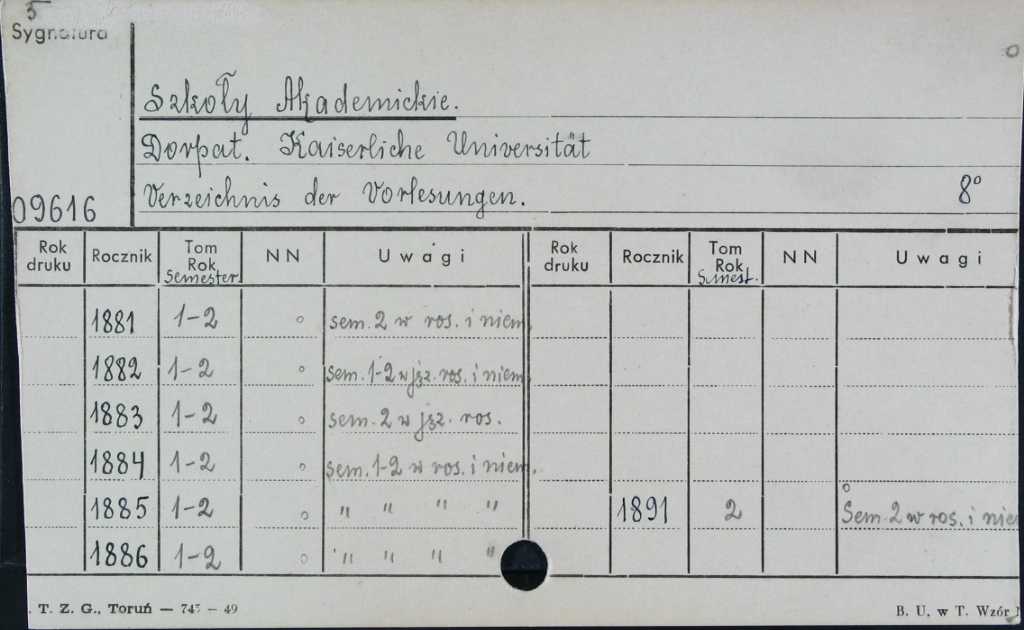 5
Sygnatura
Szkoły Akademickie.
Dorpat. Kaiserliche Universität
Verzeichnis der Vorlesungen. 8°
09616
Rok druku Rocznik Tom Rok Semester NN Uwagi Rok druku Rocznik Tom Rok Semest. NN Uwagi
1881 1-2 o sem. 2 w ros. i niem.
1882 1-2 o sem. 1-2 w jęz. ros. i niem.
1883 1-2 o sem. 2 w jęz. ros.
1884 1-2 o sem. 1-2 w ros. i niem.
1885 1-2 o " " " " 1891 2 Sem. 2 w ros. i nie
1886 1-2 o " " " "
. T. Z. G., Toruń — 745 — 49 B. U. w T. Wzór